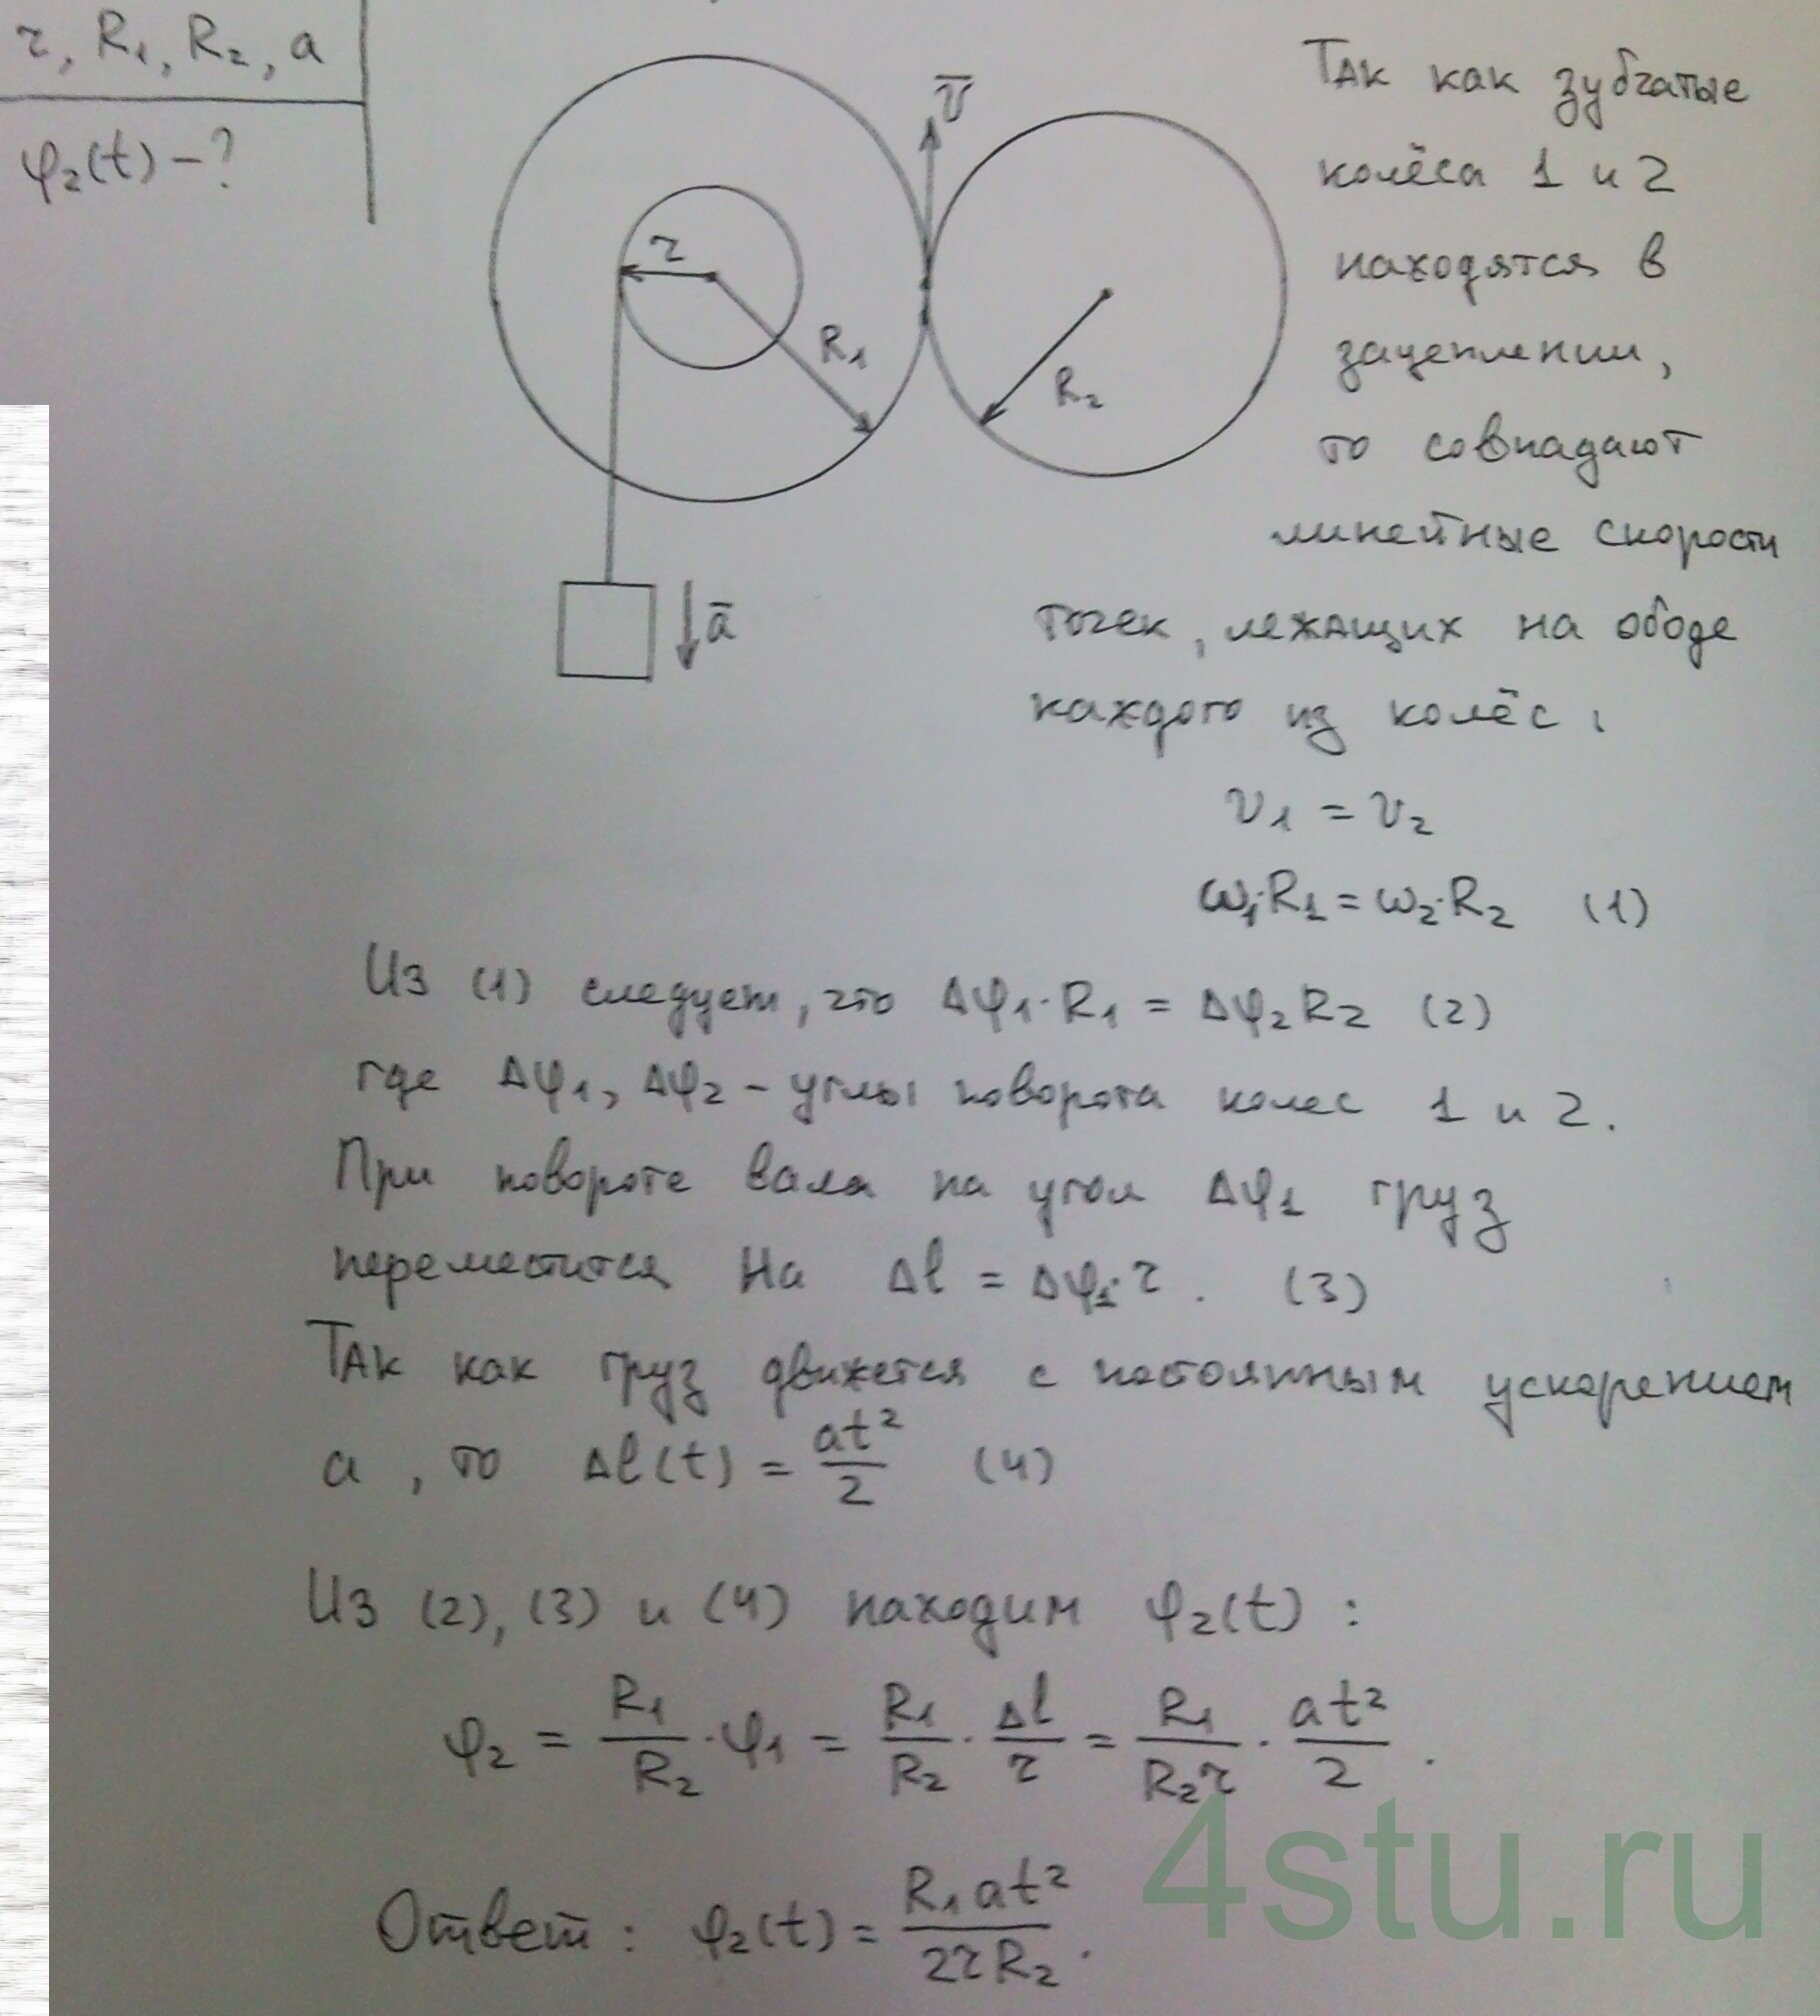 r, R₁, R₂, a
φ₂(t) – ?
v̅
r
R₁
R₂
a̅
Так как зубчатые
колёса 1 и 2
находятся в
зацеплении,
то совпадают
линейные скорости
точек, лежащих на ободе
каждого из колёс:
v₁ = v₂
ω₁·R₁ = ω₂·R₂ (1)
Из (1) следует, что Δφ₁·R₁ = Δφ₂R₂ (2)
где Δφ₁, Δφ₂ – углы поворота колес 1 и 2.
При повороте вала на угол Δφ₁ груз
переместится на Δl = Δφ₁·r. (3)
Так как груз движется с постоянным ускорением
a, то Δl(t) = at²/2 (4)
Из (2), (3) и (4) находим φ₂(t):
φ₂ = R₁/R₂ · φ₁ = R₁/R₂ · Δl/r = R₁/R₂r · at²/2.
Ответ: φ₂(t) = R₁at²/2rR₂.
4stu.ru